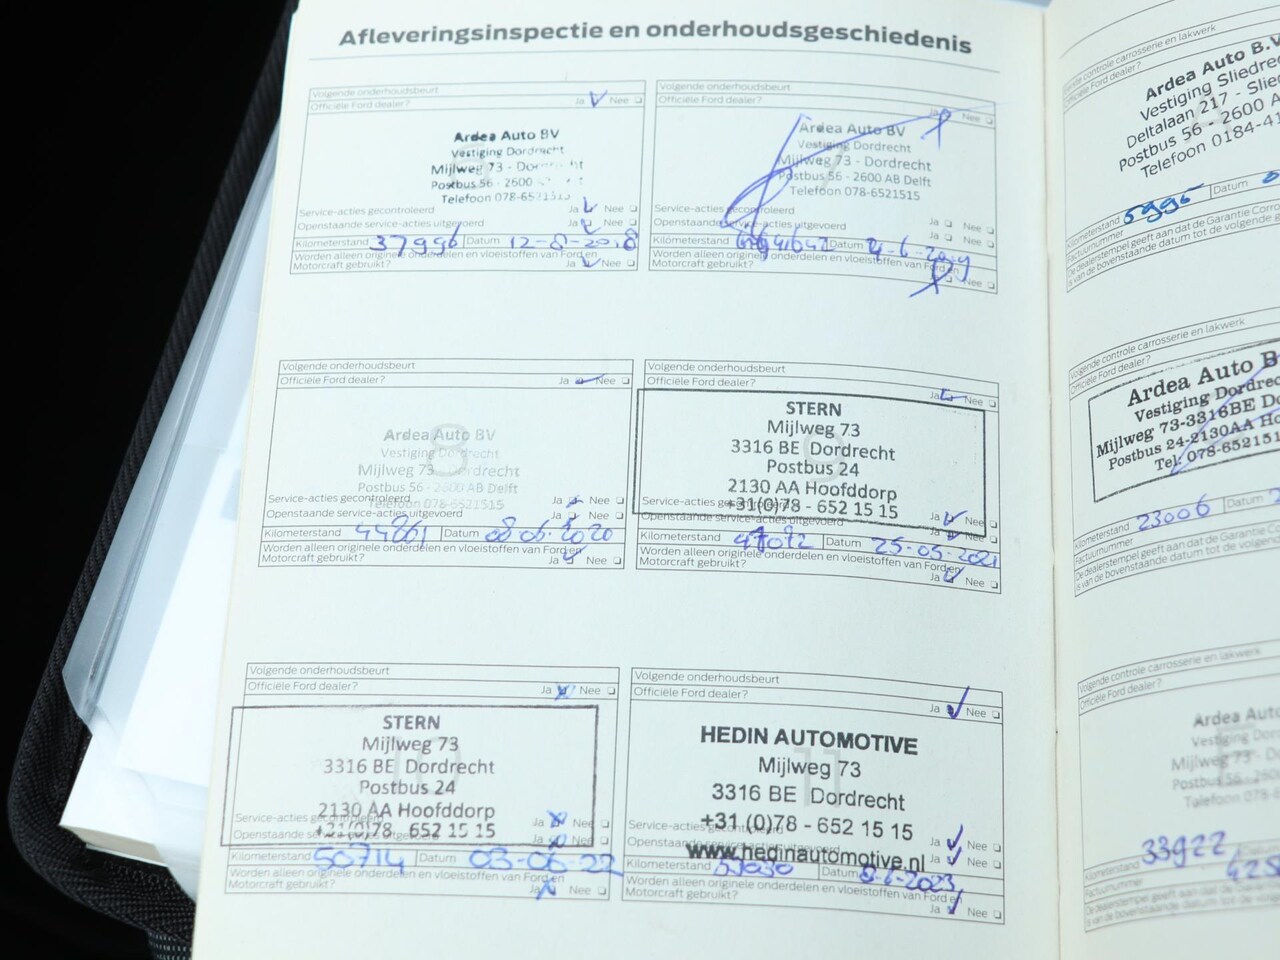 Afleveringsinspectie en onderhoudsgeschiedenis
Volgende onderhoudsbeurt
Officiële Ford dealer? Ja Nee
Ardea Auto BV
Vestiging Dordrecht
Mijlweg 73 -
Postbus 56 - 2600
Telefoon 078-6521515
Service-acties gecontroleerd Ja Nee
Openstaande service-acties uitgevoerd Ja Nee
Kilometerstand 37996 Datum 12-8-2018
Worden alleen originele onderdelen en vloeistoffen van Ford en
Motorcraft gebruikt? Ja Nee
Volgende onderhoudsbeurt
Officiële Ford dealer? Ja Nee
Ardea Auto BV
Vestiging Dordrecht
Mijlweg 73 - Dordrecht
Postbus 56 - 2600 AB Delft
Telefoon 078-6521515
Service-acties gecontroleerd Ja Nee
Openstaande service-acties uitgevoerd Ja Nee
Kilometerstand Datum 4-6-2019
Worden alleen originele onderdelen en vloeistoffen van Ford en
Motorcraft gebruikt? Nee
Volgende onderhoudsbeurt
Officiële Ford dealer? Ja Nee
8
Ardea Auto BV
Vestiging Dordrecht
Mijlweg 73 - Dordrecht
Postbus 56 - 2600 AB Delft
Telefoon 078-6521515
Service-acties gecontroleerd Ja Nee
Openstaande service-acties uitgevoerd Ja Nee
Kilometerstand 44861 Datum 2020
Worden alleen originele onderdelen en vloeistoffen van Ford en
Motorcraft gebruikt? Ja Nee
Volgende onderhoudsbeurt
Officiële Ford dealer? Ja Nee
9
STERN
Mijlweg 73
3316 BE Dordrecht
Postbus 24
2130 AA Hoofddorp
+31(0)78 - 652 15 15
Service-acties gecontroleerd Ja Nee
Openstaande service-acties uitgevoerd Ja Nee
Kilometerstand 47072 Datum 25-05-2021
Worden alleen originele onderdelen en vloeistoffen van Ford en
Motorcraft gebruikt? Ja Nee
Volgende onderhoudsbeurt
Officiële Ford dealer? Ja Nee
10
STERN
Mijlweg 73
3316 BE Dordrecht
Postbus 24
2130 AA Hoofddorp
+31(0)78 652 15 15
Service-acties gecontroleerd Ja Nee
Openstaande service-acties uitgevoerd Ja Nee
Kilometerstand 50714 Datum 03-06-22
Worden alleen originele onderdelen en vloeistoffen van Ford en
Motorcraft gebruikt? Ja Nee
Volgende onderhoudsbeurt
Officiële Ford dealer? Ja Nee
11
HEDIN AUTOMOTIVE
Mijlweg 73
3316 BE Dordrecht
+31 (0)78 - 652 15 15
www.hedinautomotive.nl
Service-acties gecontroleerd Ja Nee
Openstaande service-acties uitgevoerd Ja Nee
Kilometerstand Datum
Worden alleen originele onderdelen en vloeistoffen van Ford en
Motorcraft gebruikt? Ja Nee
Volgende controle carrosserie en lakwerk
Officiële Ford dealer?
Ardea Auto B.V
Vestiging Sliedre
Deltalaan 217 - Slie
Postbus 56 - 2600 A
Telefoon 0184-41
Kilometerstand 5995 Datum
Factuurnummer
De dealerstempel geeft aan dat de Garantie Corro
is van de bovenstaande datum tot de volgende
Volgende controle carrosserie en lakwerk
Officiële Ford dealer?
Ardea Auto B
Vestiging Dordrec
Mijlweg 73-3316BE Do
Postbus 24-2130AA Ho
Tel. 078-652151
Kilometerstand 23006 Datum
Factuurnummer
De dealerstempel geeft aan dat de Garantie Co
is van de bovenstaande datum tot de volgende
Volgende controle carrosserie en lakwerk
Officiële Ford dealer?
Ardea Auto
Vestiging Do
Mijlweg 73
Postbus 56 - 2
Telefoon 0
Kilometerstand 33922
Factuurnummer